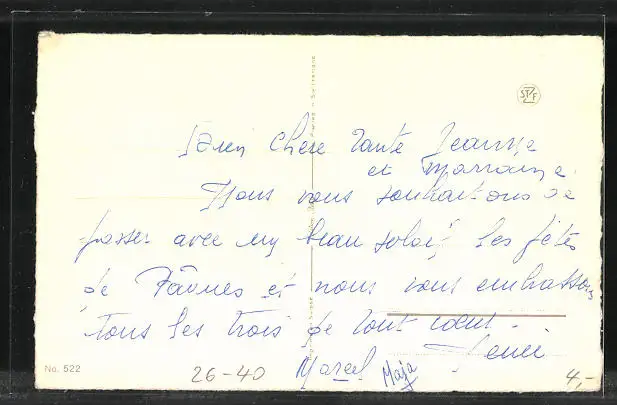 Bien chère tante Jeanne
et marraine.
Nous vous souhaitons de
passer avec un beau soleil les fêtes
de Pâques et nous vous embrassons
tous les trois de tout coeur.
Marcel Maja
No. 522
26-40
4,-